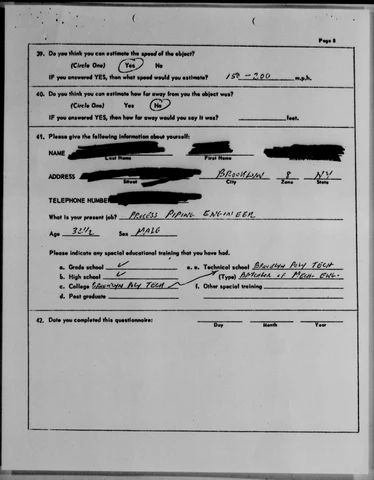 Page 8
39. Do you think you can estimate the speed of the object?
(Circle One) Yes No
IF you answered YES, then what speed would you estimate? 150-200 m.p.h.
40. Do you think you can estimate how far away from you the object was?
(Circle One) Yes No
IF you answered YES, then how far away would you say it was? feet.
41. Please give the following information about yourself:
NAME
Last Name First Name Name
ADDRESS BROOKLYN 8 NY
Street City Zone State
TELEPHONE NUMBER
What is your present job? PROCESS PIPING ENGINEER
Age 32½ Sex MALE
Please indicate any special educational training that you have had.
a. Grade school ✓ e. Technical school BROOKLYN POLY TECH
b. High school ✓ (Type) BACHELOR OF MECH. ENG.
c. College BROOKLYN POLY TECH f. Other special training
d. Post graduate
42. Date you completed this questionnaire:
Day Month Year